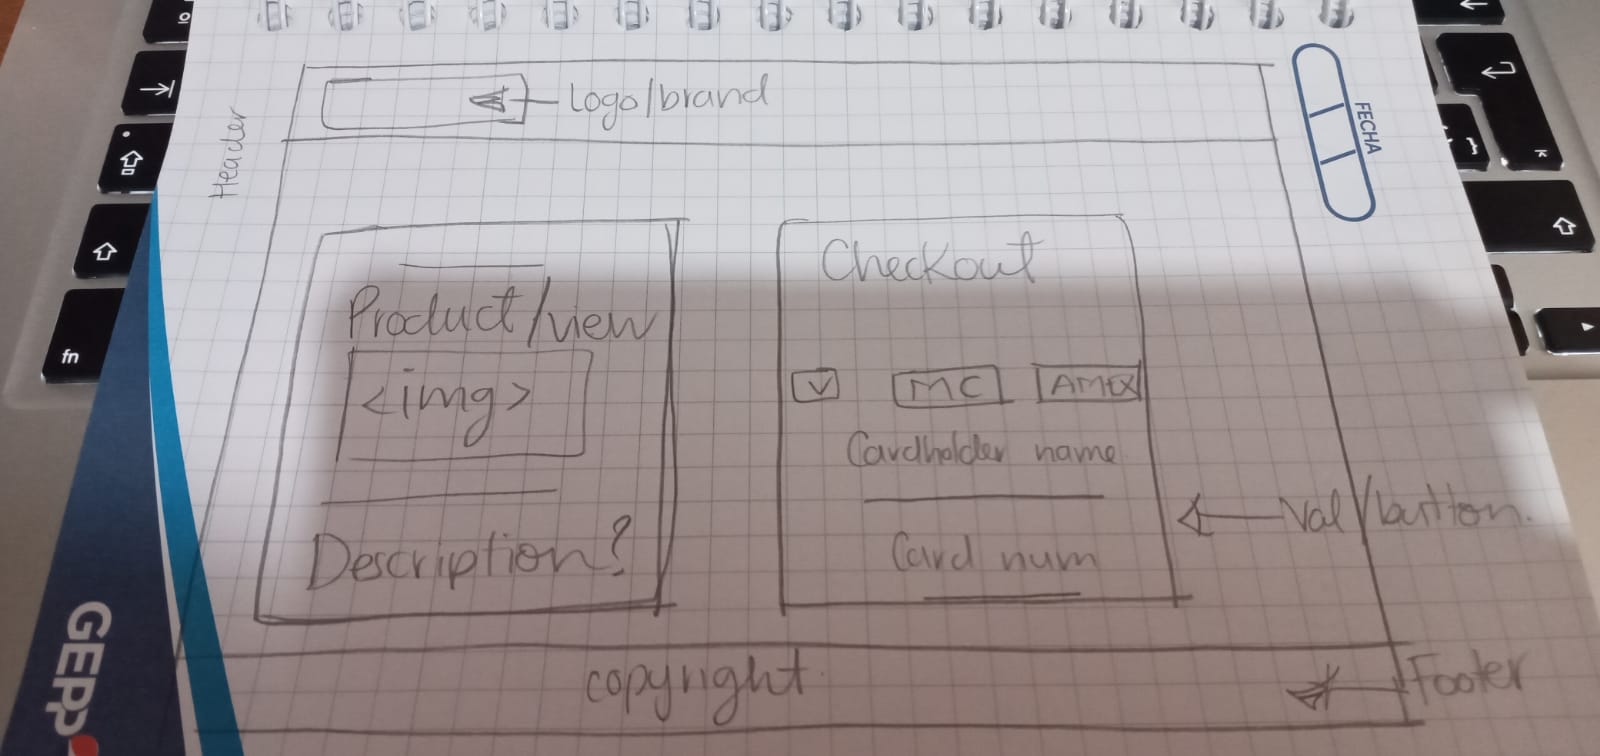 Header
Logo/brand
FECHA
Product/view
<img>
Description?
Checkout
V MC AMEX
Cardholder name
Card num
Val/button.
copyright
Footer
GEPP
fn